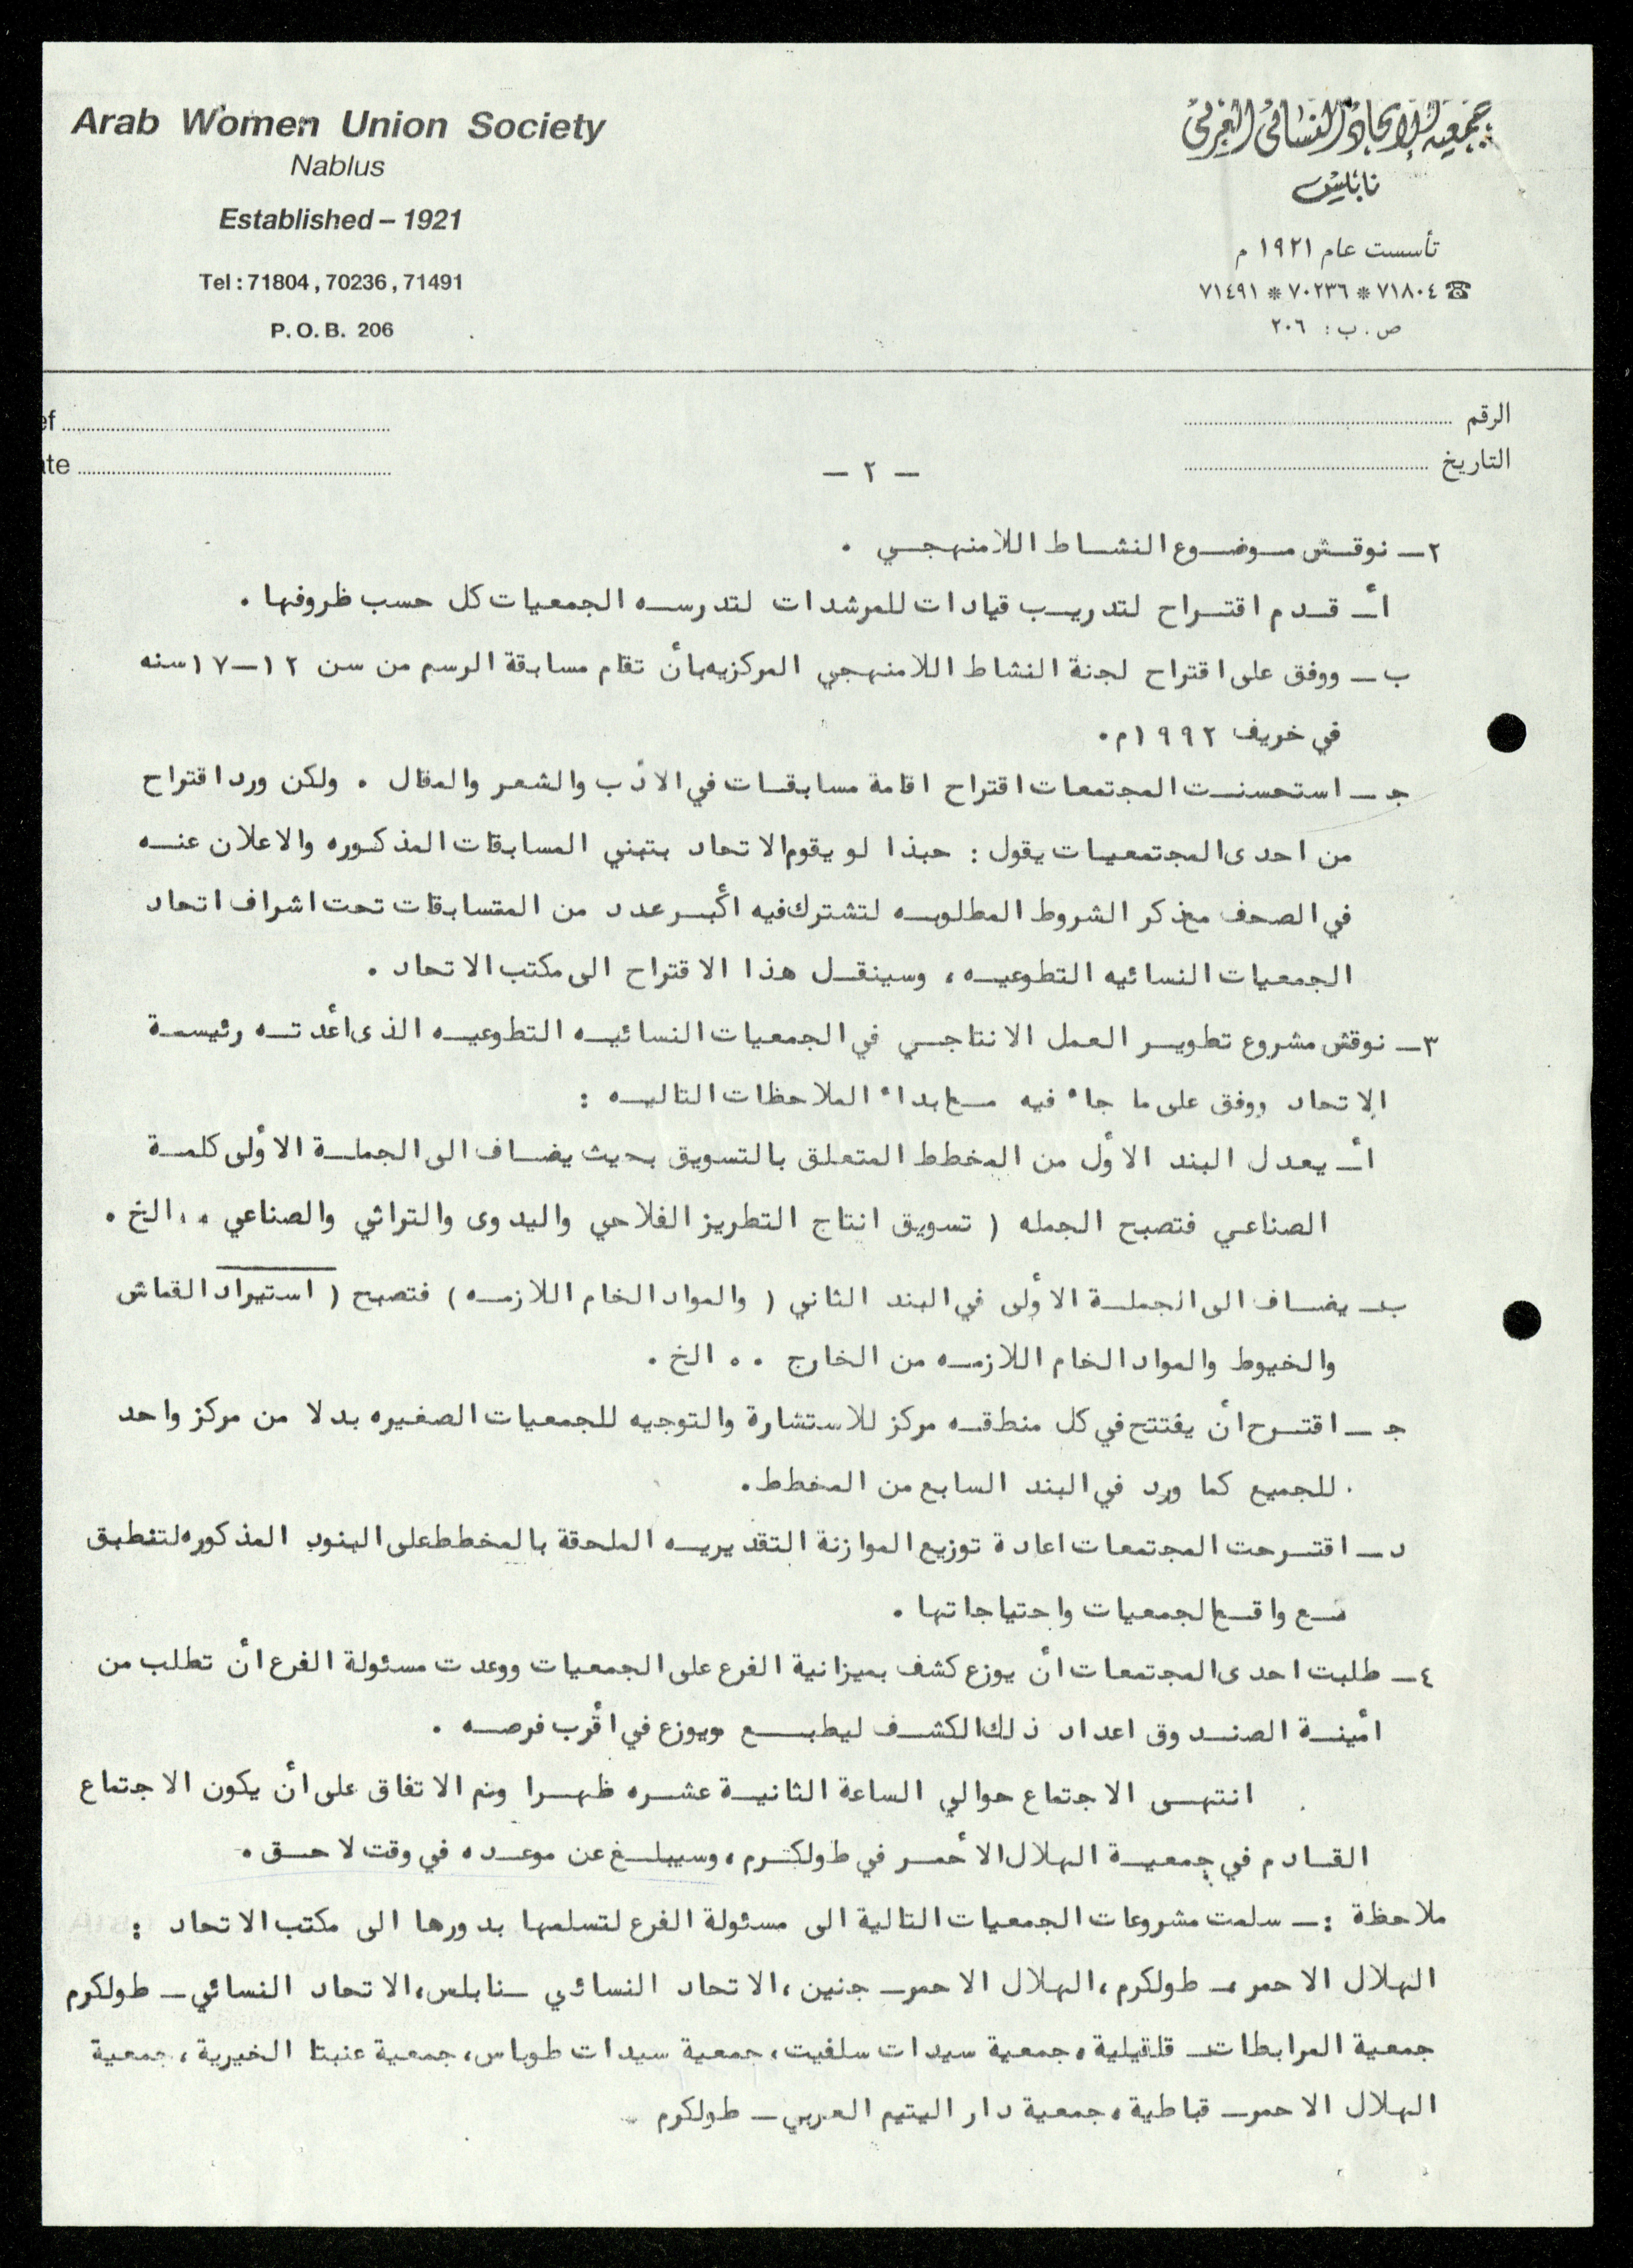 Arab Women Union Society
Nablus
Established – 1921
Tel : 71804 , 70236 , 71491
P. O. B. 206
جمعية الاتحاد النسائي العربي
نابلس
تأسست عام ١٩٢١ م
☎ ٧١٨٠٤ * ٧٠٢٣٦ * ٧١٤٩١
ص . ب : ٢٠٦
ef
ate
الرقم
التاريخ
– ٢ –
٢– نوقش موضوع النشاط اللامنهجي .
أ– قدم اقتراح لتدريب قيادات للمرشدات لتدرسه الجمعيات كل حسب ظروفها .
ب – ووفق على اقتراح لجنة النشاط اللامنهجي المركزيه بأن تقام مسابقة الرسم من سن ١٢–١٧ سنه
في خريف ١٩٩٢م .
ج – استحسنت المجتمعات اقتراح اقامة مسابقات في الأدب والشعر والمقال . ولكن ورد اقتراح
من احدى المجتمعيات يقول : حبذا لو يقوم الاتحاد بتبني المسابقات المذكوره والاعلان عنه
في الصحف مع ذكر الشروط المطلوبه لتشترك فيه أكبر عدد من المتسابقات تحت اشراف اتحاد
الجمعيات النسائيه التطوعيه ، وسينقل هذا الاقتراح الى مكتب الاتحاد .
٣– نوقش مشروع تطوير العمل الانتاجي في الجمعيات النسائيه التطوعيه الذى أعدته رئيسة
الاتحاد ووفق على ما جاء فيه مع ابداء الملاحظات التاليه :
أ– يعدل البند الأول من المخطط المتعلق بالتسويق بحيث يضاف الى الجملة الأولى كلمة
الصناعي فتصبح الجمله ( تسويق انتاج التطريز الفلاحي واليدوى والتراثي والصناعي .. الخ .
ب– يضاف الى الجملة الأولى في البند الثاني ( والمواد الخام اللازمه ) فتصبح ( استيراد القماش
والخيوط والمواد الخام اللازمه من الخارج .. الخ .
ج – اقترح أن يفتتح في كل منطقه مركز للاستشارة والتوجيه للجمعيات الصغيره بدلا من مركز واحد
للجميع كما ورد في البند السابع من المخطط .
د – اقترحت المجتمعات اعادة توزيع الموازنة التقديريه الملحقة بالمخطط على البنود المذكوره لتنطبق
مع واقع الجمعيات واحتياجاتها .
٤– طلبت احدى المجتمعات أن يوزع كشف بميزانية الفرع على الجمعيات ووعدت مسئولة الفرع أن تطلب من
أمينة الصندوق اعداد ذلك الكشف ليطبع ويوزع في أقرب فرصه .
انتهى الاجتماع حوالي الساعة الثانية عشره ظهرا وتم الاتفاق على أن يكون الاجتماع
القادم في جمعية الهلال الأحمر في طولكرم ، وسيبلغ عن موعده في وقت لاحق .
ملاحظة :– سلمت مشروعات الجمعيات التالية الى مسئولة الفرع لتسلمها بدورها الى مكتب الاتحاد :
الهلال الاحمر – طولكرم ، الهلال الاحمر– جنين ، الاتحاد النسائي –نابلس ، الاتحاد النسائي– طولكرم
جمعية المرابطات– قلقيلية ، جمعية سيدات سلفيت ، جمعية سيدات طوباس ، جمعية عنبتا الخيرية ، جمعية
الهلال الاحمر– قباطية ، جمعية دار اليتيم العربي– طولكرم .